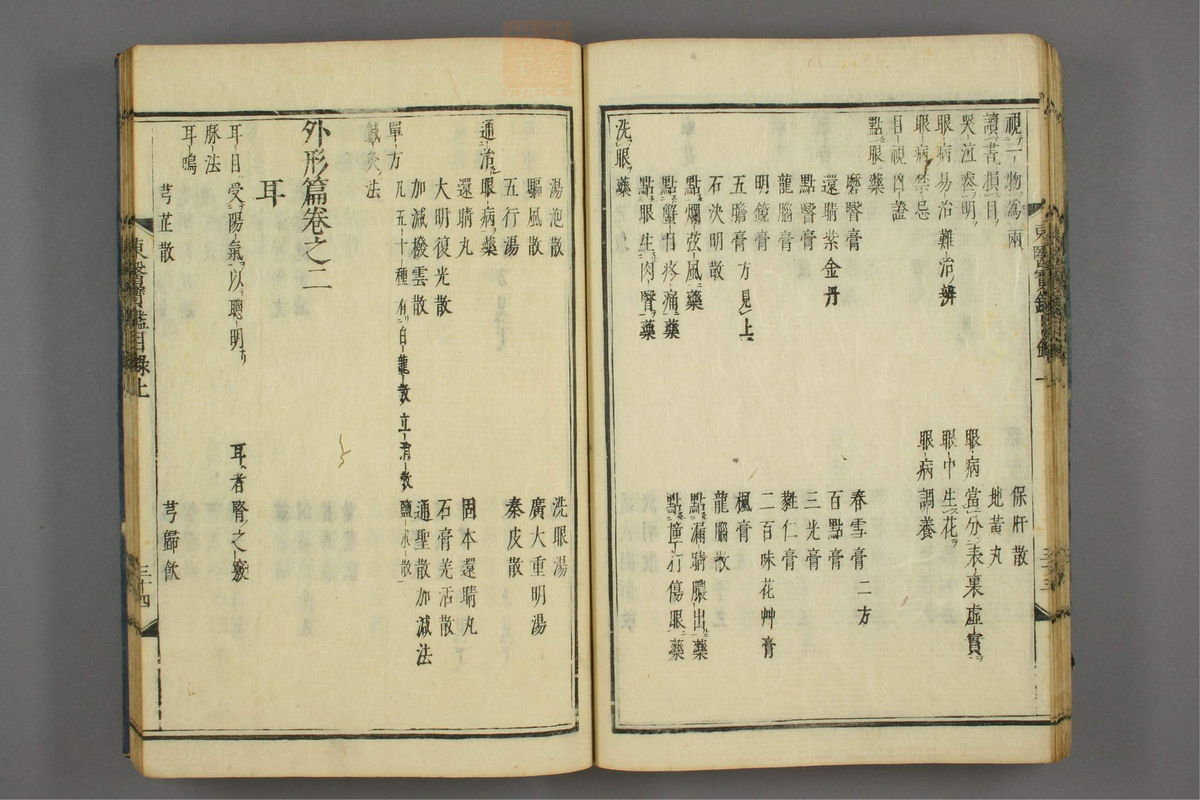 視一物爲兩
保肝散
讀書損目
地黃丸
哭泣喪明
眼病當分表裏虛實
眼病易治難治辨
眼中生花
眼病禁忌
眼病調養
目視凶證
點眼藥
磨瞖膏
春雪膏二方
還睛紫金丹
百點膏
點瞖膏
三光膏
龍腦膏
蕤仁膏
明鏡膏
二百味花艸膏
五膽膏方見上
楓膏
石決明散
龍腦散
點爛弦風藥
點漏睛膿出藥
點蟹目疼痛藥
點撞打傷眼藥
點眼生肉瞖藥
洗眼藥
東醫寶鑑目錄上
三十三
湯泡散
洗眼湯
驅風散
廣大重明湯
五行湯
秦皮散
通治眼病藥
還睛丸
固本還睛丸
大明復光散
石膏羌活散
加減撥雲散
通聖散加減法
單方
凡五十種有白龍散立消散鹽水散
鍼灸法
外形篇卷之二
耳
耳目受陽氣以聰明
耳者腎之竅
脉法
耳鳴
芎芷散
芎歸飮
東醫寶鑑目錄上
三十四